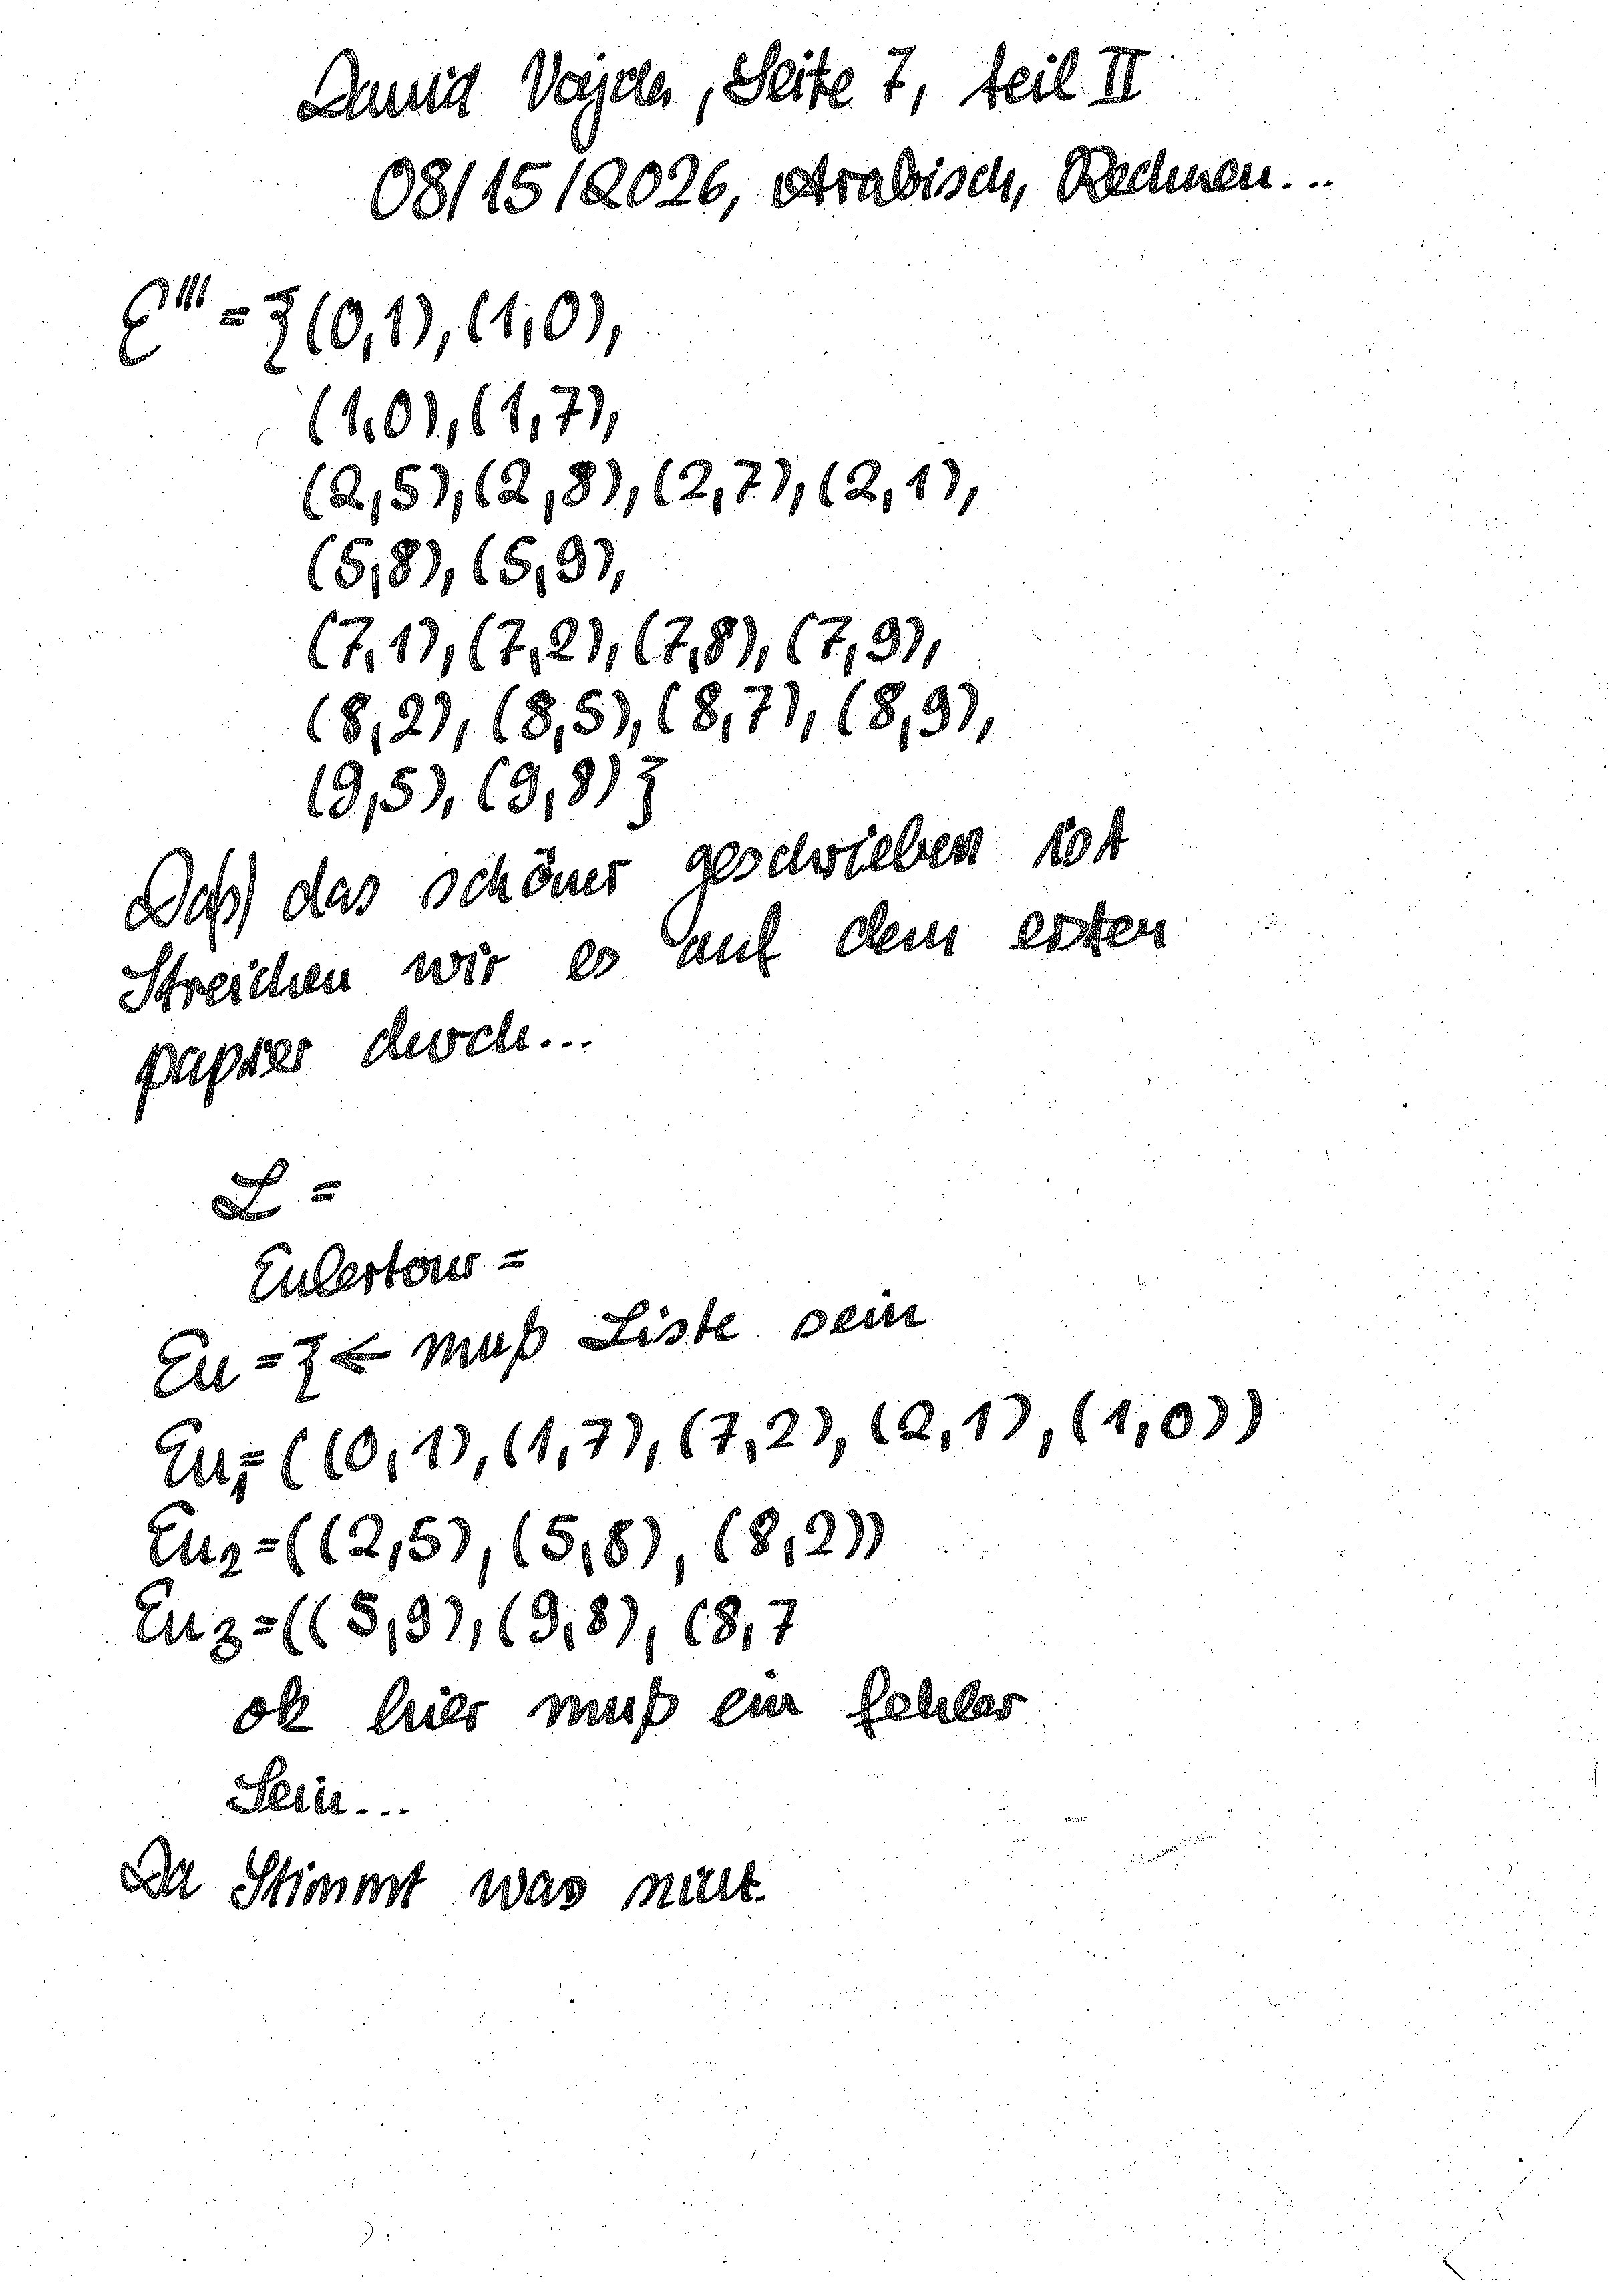 David Vajda, Seite 7, teil II
08/15/2026, Arabisch, Rechnen...
E''' = {(0,1), (1,0),
(1,0), (1,7),
(2,5), (2,8), (2,7), (2,1),
(5,8), (5,9),
(7,1), (7,2), (7,8), (7,9),
(8,2), (8,5), (8,7), (8,9),
(9,5), (9,8)}
Daß das schöner geschrieben ist
Streichen wir es auf dem ersten
papier durch...
L =
Eulertour =
Eu = { ← muß Liste sein
Eu₁ = ((0,1), (1,7), (7,2), (2,1), (1,0))
Eu₂ = ((2,5), (5,8), (8,2))
Eu₃ = ((5,9), (9,8), (8,7
ok hier muß ein fehler
Sein...
Da Stimmt was nicht.